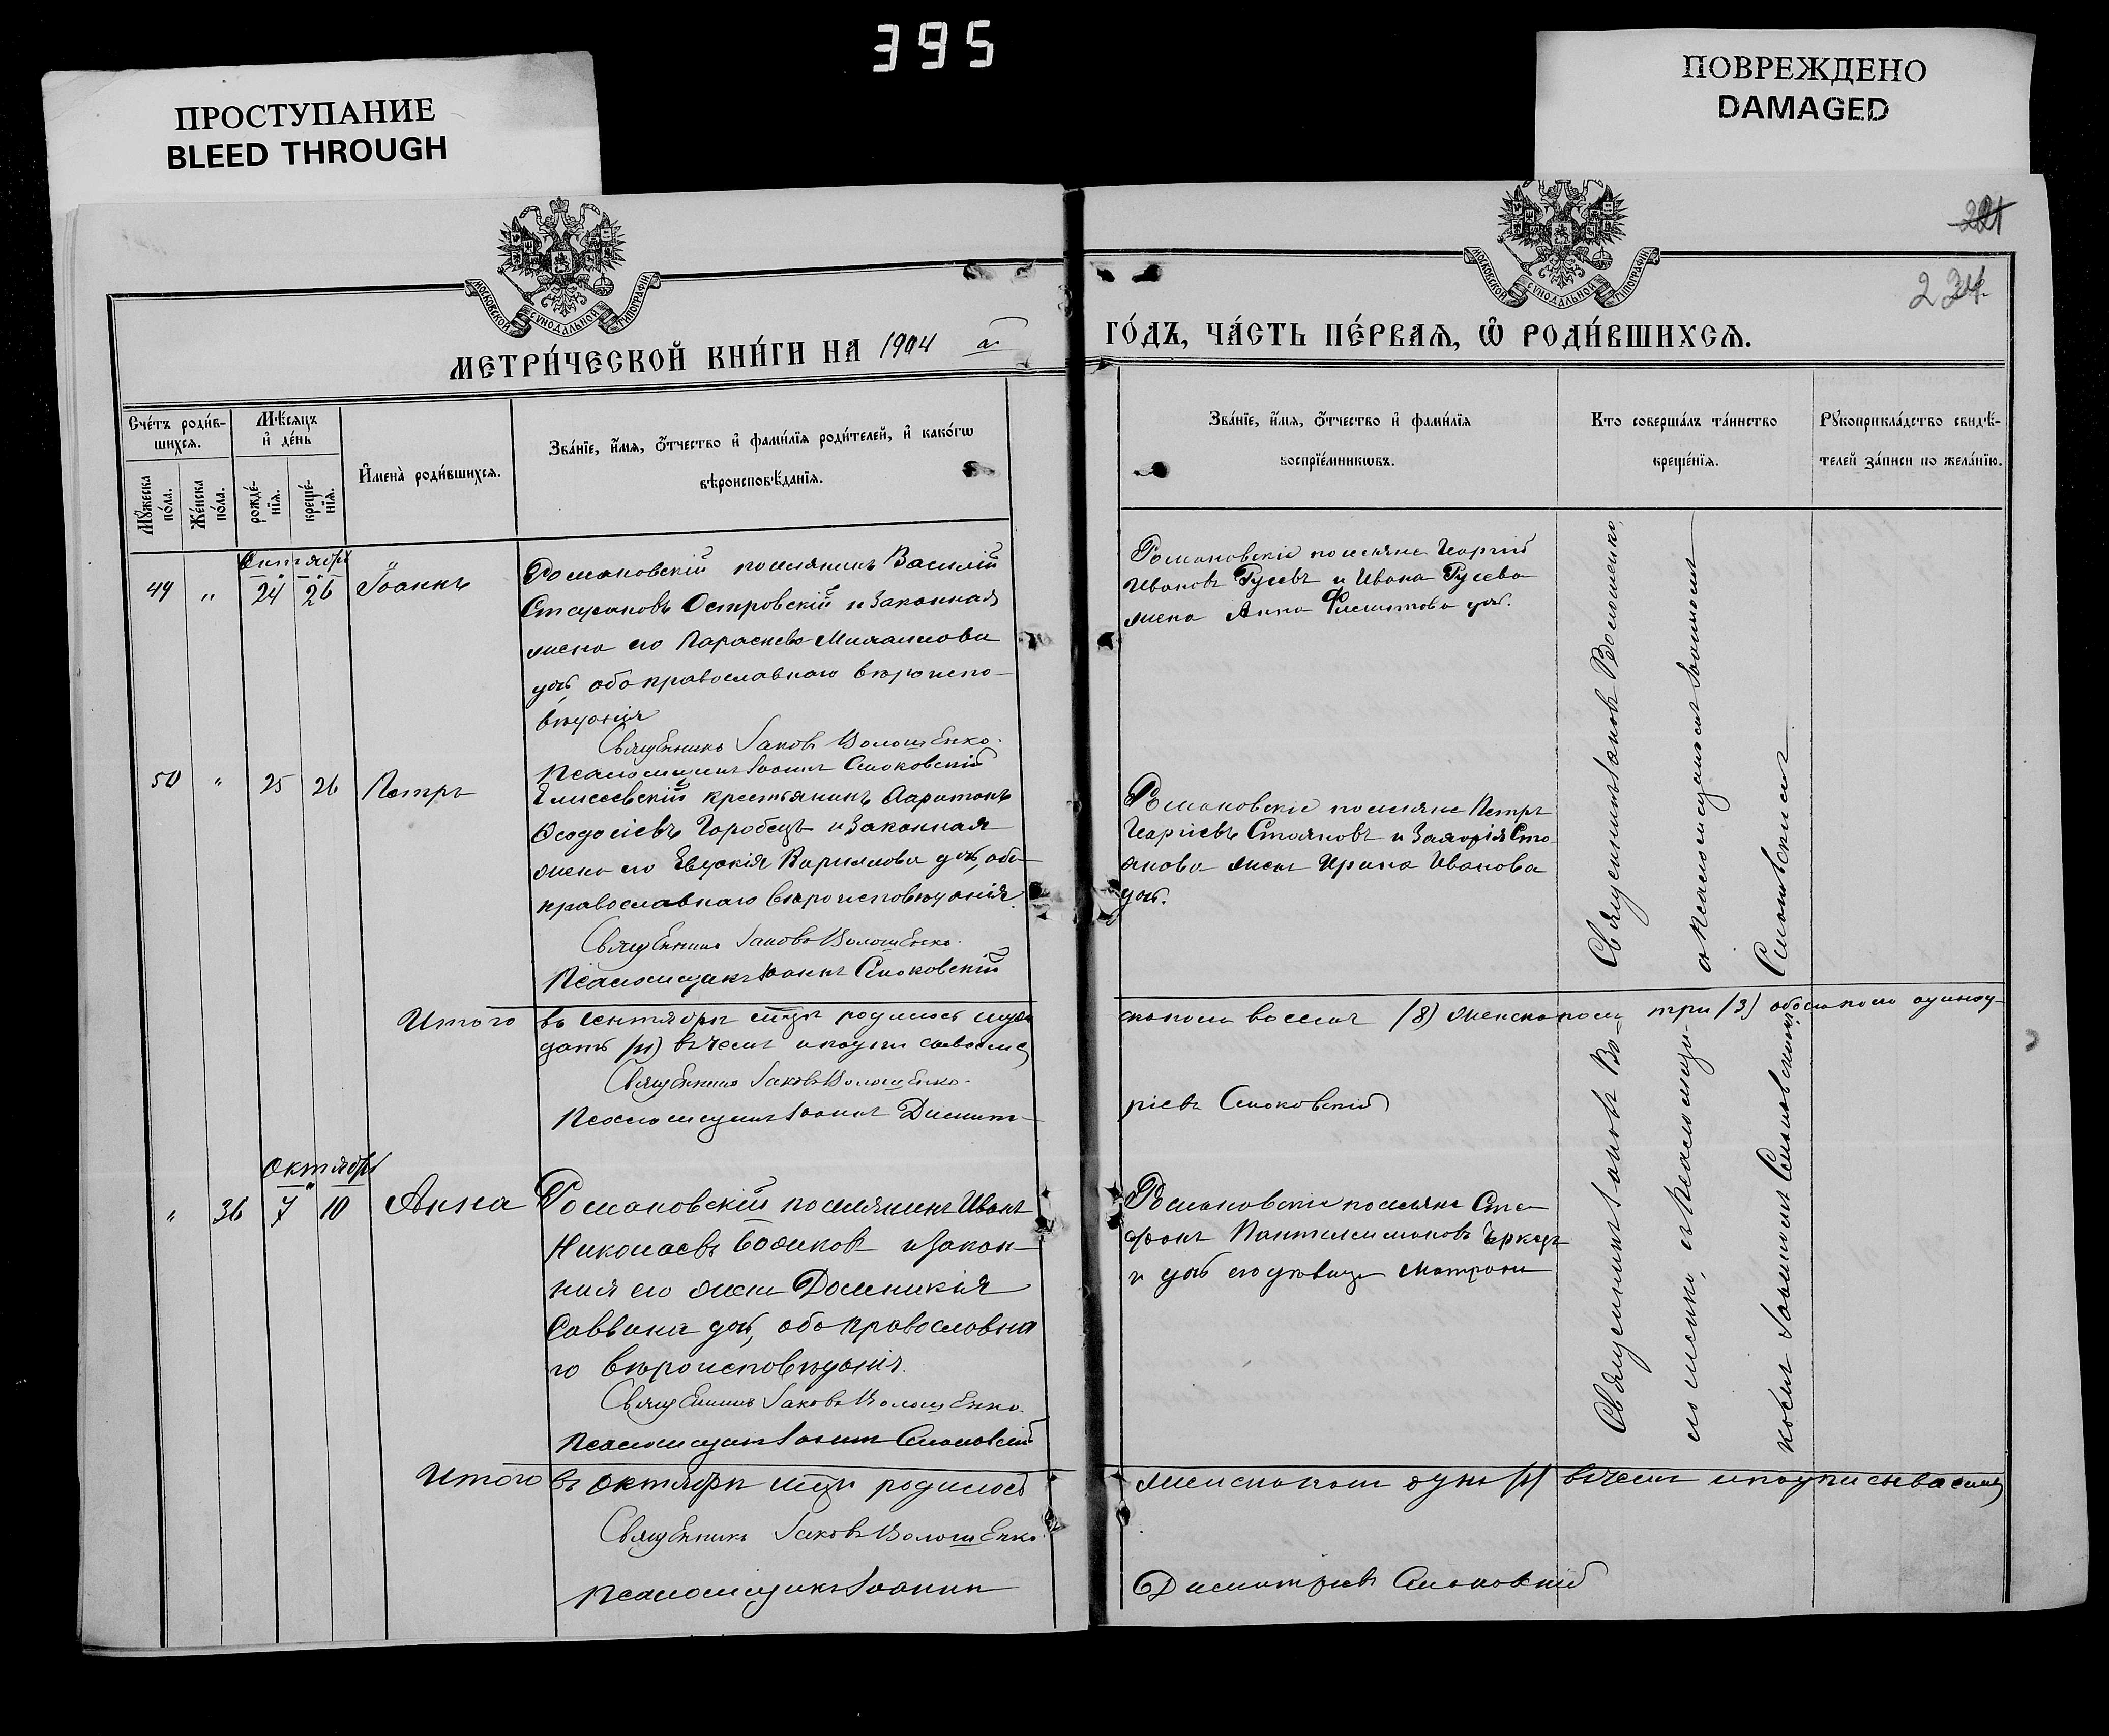 395
ПРОСТУПАНИЕ
BLEED THROUGH
ПОВРЕЖДЕНО
DAMAGED
221
234.
МОСКОВСКОЙ СѴНОДАЛЬНОЙ ТИПОГРАФІИ
МОСКОВСКОЙ СѴНОДАЛЬНОЙ ТИПОГРАФІИ
МЕТРИ́ЧЕСКОЙ КНИ́ГИ НА 1904 й
ГО́ДЪ, ЧА́СТЬ ПЕ́РВАѦ, Ѡ҆ РОДИ́ВШИХСѦ.
Сче́тъ роди́в-
шихсѧ.
Мѹ́жеска
по́ла.
Же́нска
по́ла.
Мѣ́сѧцъ
и҆ де́нь
рожде́-
нїѧ.
креще́-
нїѧ.
И҆мена̀ роди́вшихсѧ.
Зва́нїе, и҆́мѧ, ѻ҆́тчество и҆ фами́лїѧ роди́телей, и҆ како́гѡ
вѣроисповѣ́данїѧ.
Зва́нїе, и҆́мѧ, ѻ҆́тчество и҆ фами́лїѧ
воспрїе́мникѡвъ.
Кто соверша́лъ та́инство
креще́нїѧ.
Рѹкоприкла́дство свидѣ́-
телей за́писи по жела́нїю.
Октября
49 " 24 26 Іоаннъ
Романовскій поселянинъ Василій
Стефановъ Островскій и законная
жена его Параскева Михаилова
дочь, оба православнаго вѣроиспо-
вѣданія
Священникъ Іаковъ Волошенко.
Псаломщикъ Іоаннъ Смоковскій
Романовскіе поселяне Георгій
Ивановъ Гусевъ и Ивана Гусева
жена Анна Филиппова дочь.
50 " 25 26 Петръ
Елисеевскій крестьянинъ Харитонъ
Ѳеодосіевъ Горобецъ и законная
жена его Евдокія Кириллова дочь, оба
православнаго вѣроисповѣданія.
Священникъ Іаковъ Волошенко.
Псаломщикъ Іоаннъ Смоковскій
Романовскіе поселяне Петръ
Георгіевъ Стояновъ и Захарія Сто-
янова жена Ирина Иванова
дочь.
Священникъ Іаковъ Волошенко
съ псаломщикомъ Іоанномъ
Смоковскимъ
Итого въ сентябрѣ мцѣ родилось муже
скаго пола восемь (8) женскаго пола три (3) обоего пола одинад-
цать (11) въ чемъ и подписываемся
Священникъ Іаковъ Волошенко.
Псаломщикъ Іоаннъ Димит-
ріевъ Смоковскій
Октября
" 36 7 10 Анна
Романовскій поселянинъ Иванъ
Николаевъ Бодиковъ и закон-
ная его жена Доминикія
Саввина дочь, оба православна
го вѣроисповѣданія.
Священникъ Іаковъ Волошенко.
Псаломщикъ Іоаннъ Смоковскій
Романовскіе поселяне Сте-
фанъ Пантелимоновъ
и дочь его дѣвица Матрона
Священникъ Іаковъ Во-
лошенко, съ псаломщи-
комъ Іоанномъ Смоковскимъ
Итого въ октябрѣ мцѣ родилось
женскаго пола одна (1) въ чемъ и подписываемся
Священникъ Іаковъ Волошенко.
Псаломщикъ Іоаннъ
Димитріевъ Смоковскій